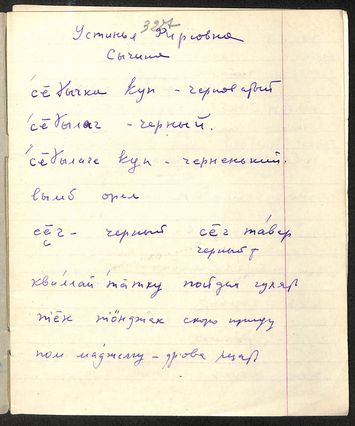 327
Устинья Фирсовна
Сычина
сё̄ɣычка кун - черноватый
сё̄ɣылаг - черный.
сё̄ɣылаге кун - черненький.
вымб орел
сё̄г - черный сё̄г та́вер
черный т
ква́ллай та̄тку пойдем гулять
тё̄к тӧнджак скоро приду
пом ма́джелгу - дрова